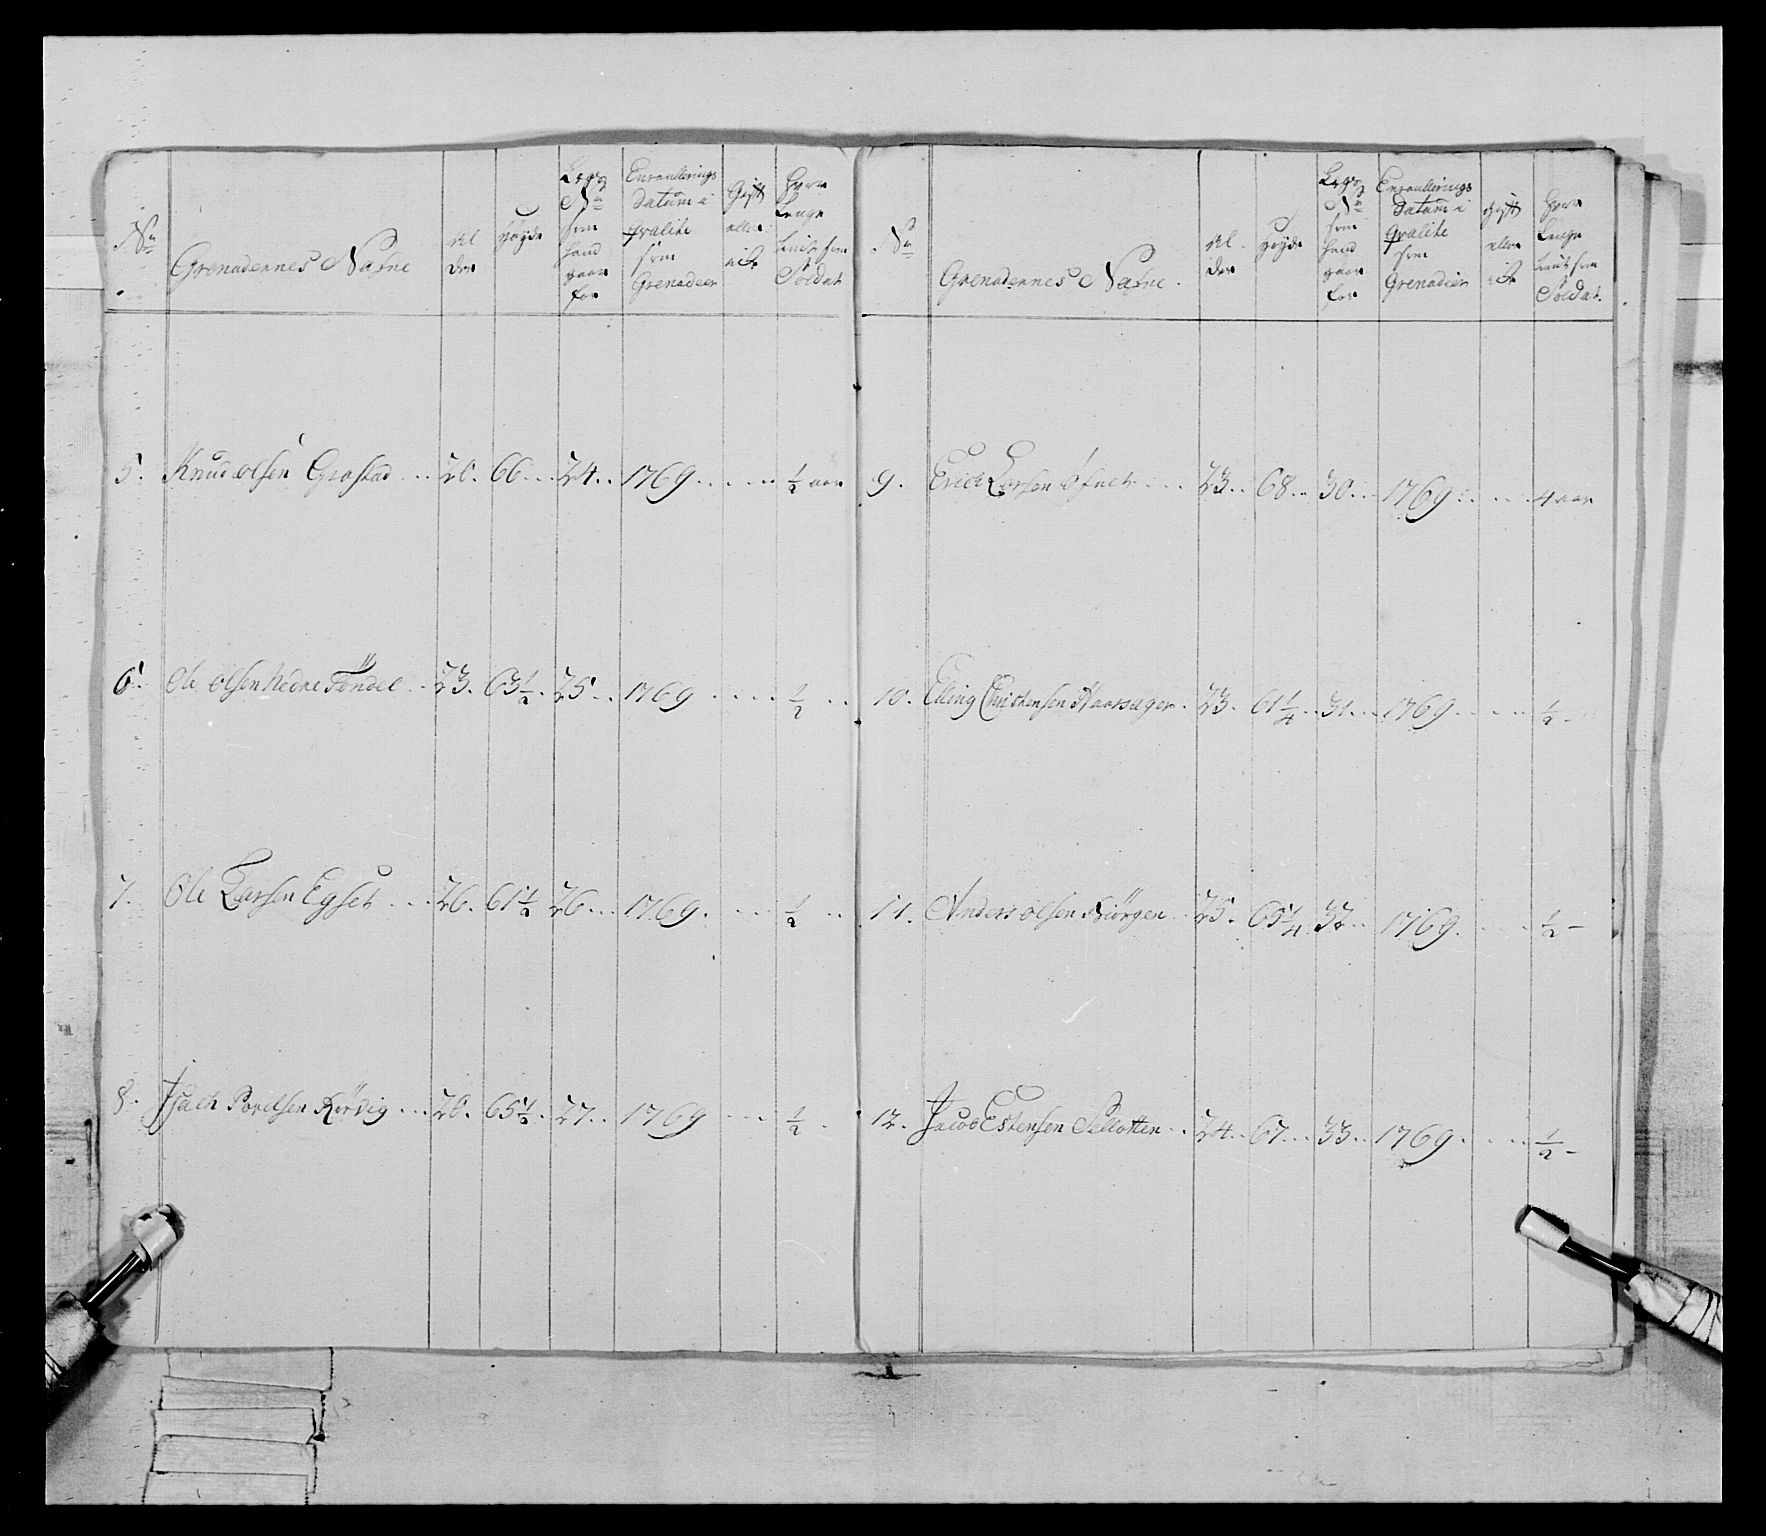 No
Grenadernes Nafne
Al
der
Høyde
Legs
No
som
hand
gaar
for
Enroullerings
Datum i
Qvalite
som
Grenadeer
Gift
eller
ei
Hvor
Lenge
tient som
Soldat
5. Knud Olsen Grastad 26. 66 24 1769 1/2 aar
6. Ole Olsen Nedre Tøndel 23. 63 1/2 25 1769 1/2
7. Ole Larsen Egset 26. 61 1/2 26 1769 1/2
8. Isach Povelsen 26. 65 1/2 27 1769 1/2
No
Grenadernes Nafne
Al
der
Høyde
Legs
No
som
hand
gaar
for
Enroullerings
Datum i
Qvalite
som
Grenadier
gift
eller
ei
Hvor
Lenge
tient som
Soldat
9. Erich Larsen Øfnet 23 68 30 1769 4 aar
10. Elling Christensen Haarsager 23. 61 1/4 31 1769 1/2 -
11. Anders Olsen Biørgen 25. 65 1/4 32 1769 1/2 -
12. Jacob Estensen 24 67 33 1769 1/2 -